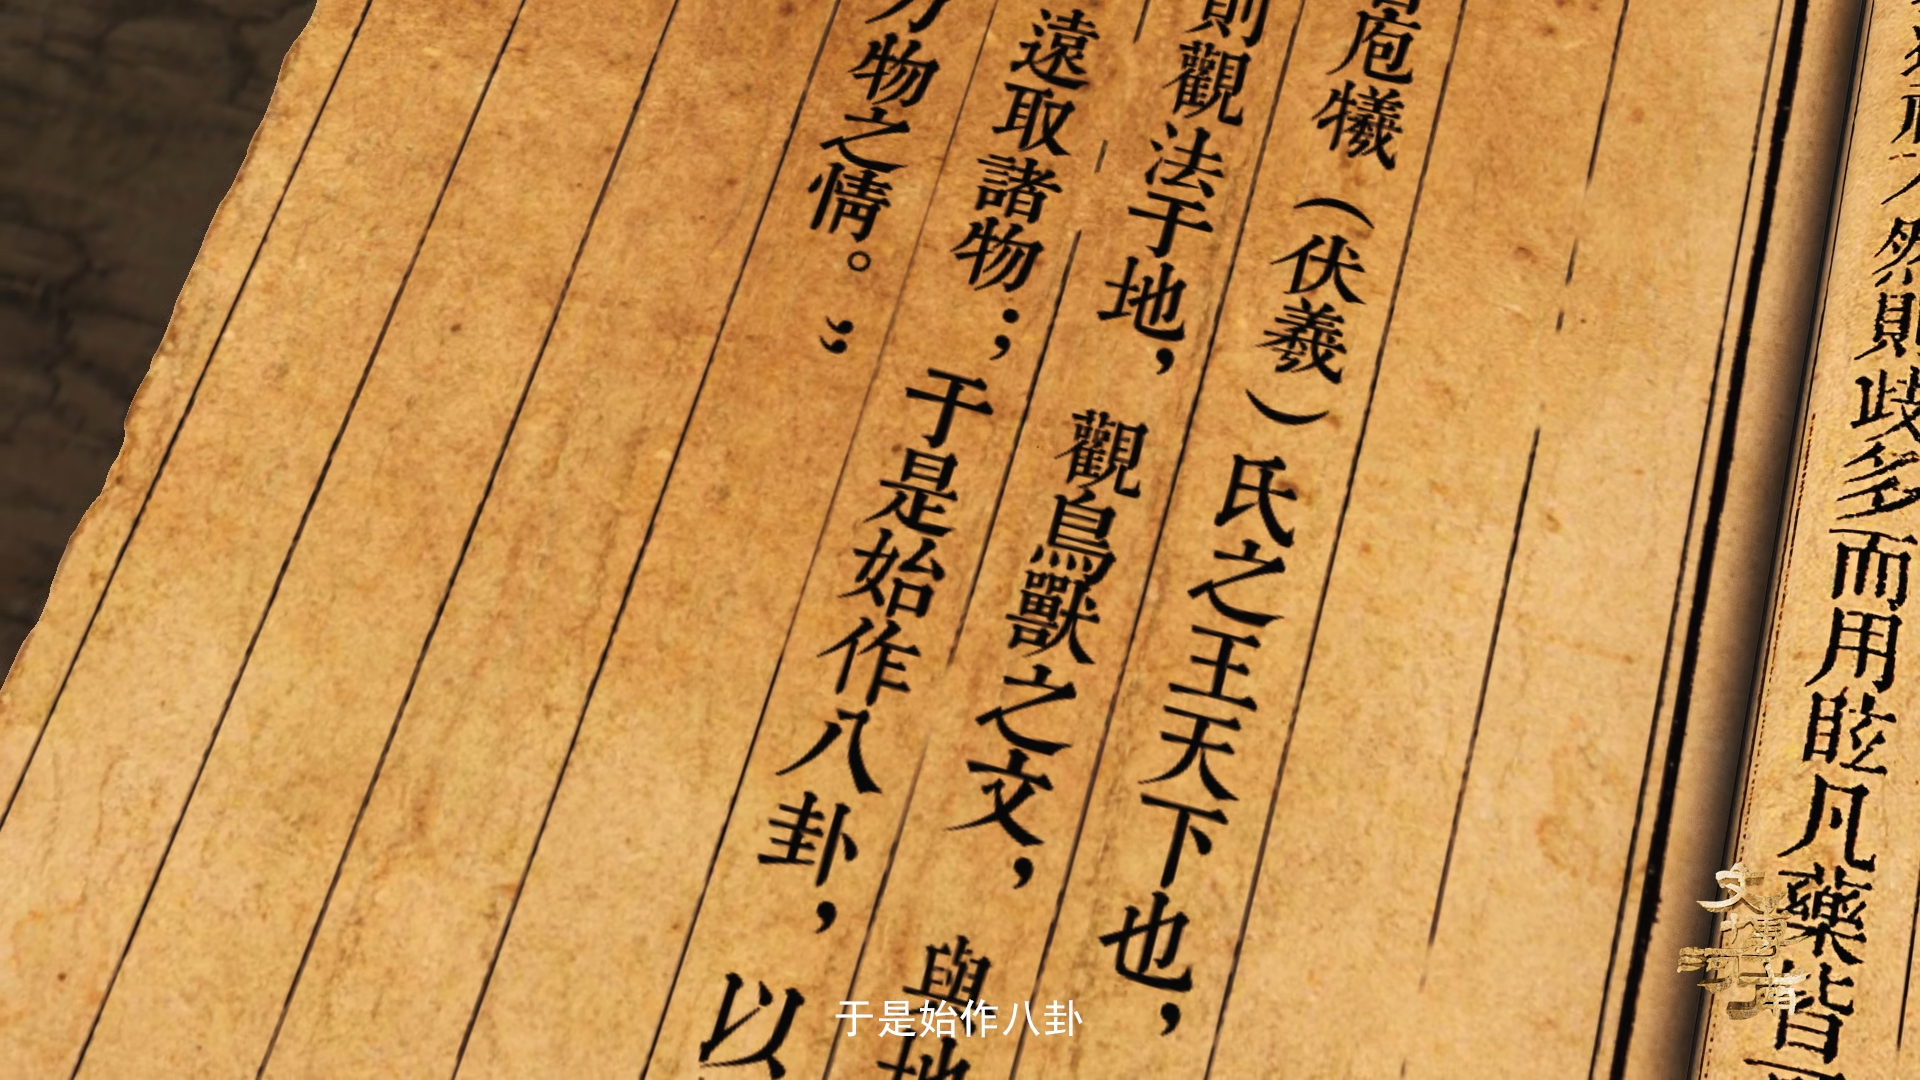 然則歧多而用眩凡藥皆
庖犧（伏羲）氏之王天下也，
則觀法于地，觀鳥獸之文，與地
遠取諸物；于是始作八卦，以
物之情。”
于是始作八卦
文博河南